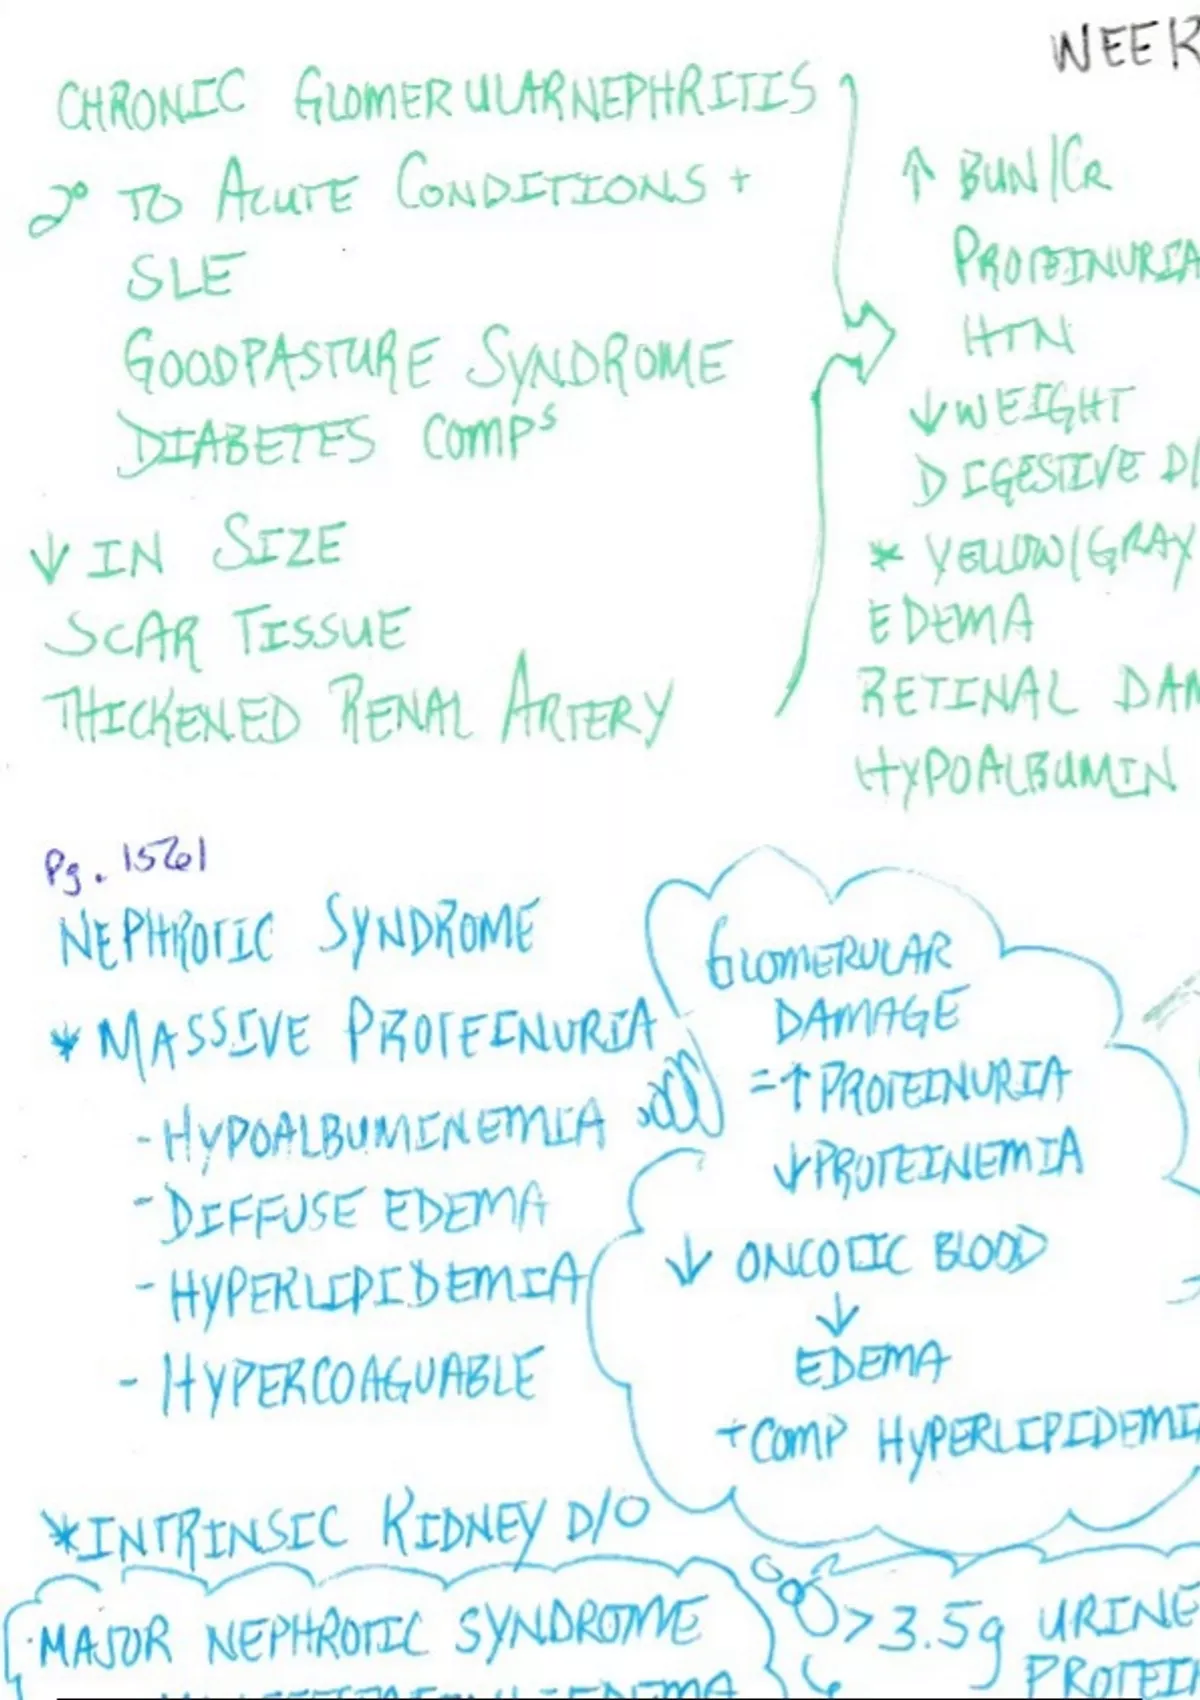 WEEK
CHRONIC GLOMERULARNEPHRITIS
2° TO ACUTE CONDITIONS +
SLE
GOODPASTURE SYNDROME
DIABETES COMPS
↓ IN SIZE
SCAR TISSUE
THICKENED RENAL ARTERY
↑ BUN/CR
PROTEINURIA
HTN
↓ WEIGHT
DIGESTIVE D/
* YELLOW/GRAY
EDEMA
RETINAL DAM
HYPOALBUMIN
Pg. 1561
NEPHROTIC SYNDROME
* MASSIVE PROTEINURIA
- HYPOALBUMINEMIA
- DIFFUSE EDEMA
- HYPERLIPIDEMIA
- HYPERCOAGUABLE
* INTRINSIC KIDNEY D/O
GLOMERULAR
DAMAGE
= ↑ PROTEINURIA
↓ PROTEINEMIA
↓ ONCOTIC BLOOD
↓
EDEMA
+ COMP HYPERLIPIDEMI
MAJOR NEPHROTIC SYNDROME
= EDEMA
> 3.5g URINE
PROTEIN